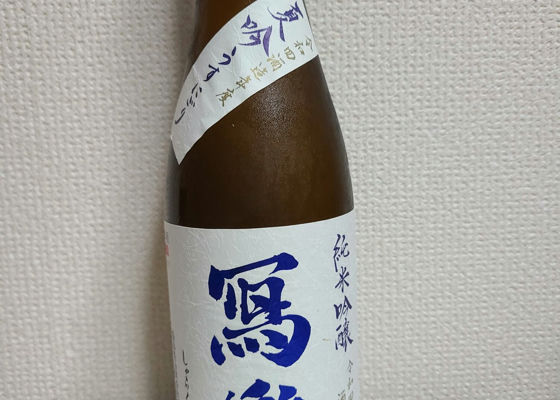 夏吟 うすにごり
令和四酒造年度
純米吟醸
令和四
酒
寫樂